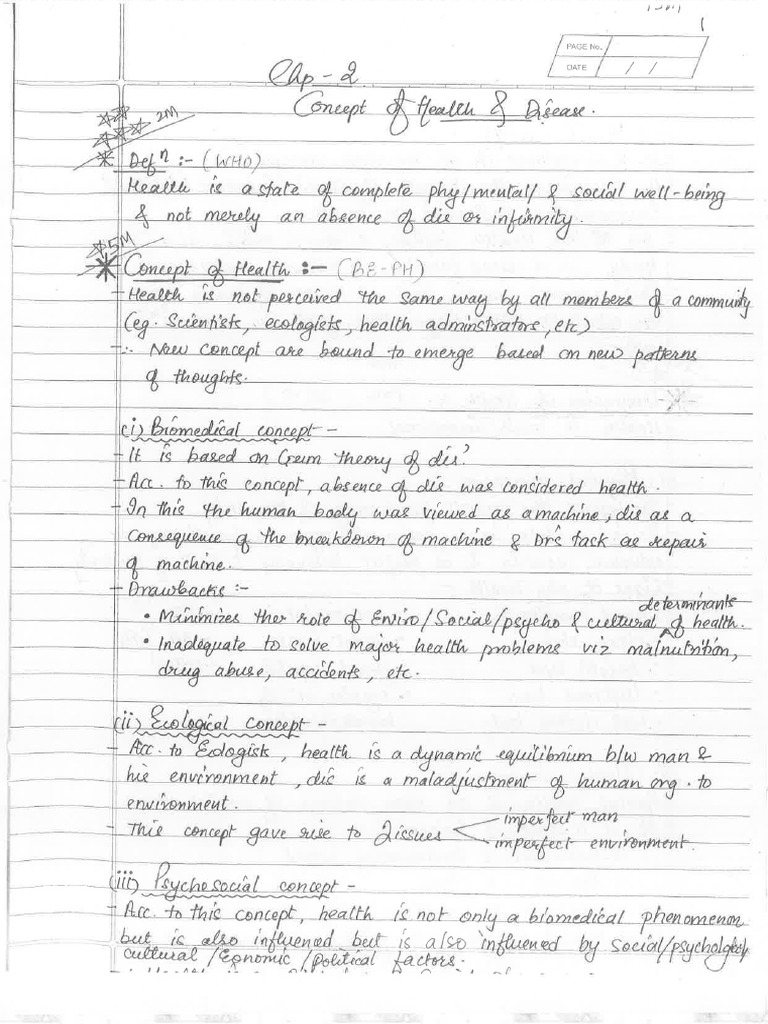 1
PAGE No.
DATE / /
Chp - 2
Concept of Health & Disease.
2M
* Defⁿ :- (WHO)
Health is a state of complete phy/mental/ & social well-being
& not merely an absence of dis or infirmity.
5M
* Concept of Health :- (BE-PH)
- Health is not perceived the same way by all members of a community
(eg. Scientists, ecologists, health adminstrators, etc)
∴ New concept are bound to emerge based on new patterns
of thoughts.
(i) Biomedical concept -
- It is based on Germ theory of dis?
- Acc. to this concept, absence of dis was considered health.
- In this the human body was viewed as a machine, dis as a
consequence of the breakdown of machine & Drs task as repair
of machine.
- Drawbacks :-
• Minimizes the role of Enviro/Social/psycho & cultural determinants of health.
• Inadequate to solve major health problems viz malnutrition,
drug abuse, accidents, etc.
(ii) Ecological concept -
- Acc. to Eologists, health is a dynamic equilibrium b/w man &
his environment, dis is a maladjustment of human org. to
environment.
- This concept gave rise to 2 issues
imperfect man
imperfect environment.
(iii) Psychosocial concept -
- Acc. to this concept, health is not only a biomedical phenomenon
but is also influened but is also influened by social/psycholgical/
cultural /Eqnomic /political factors.